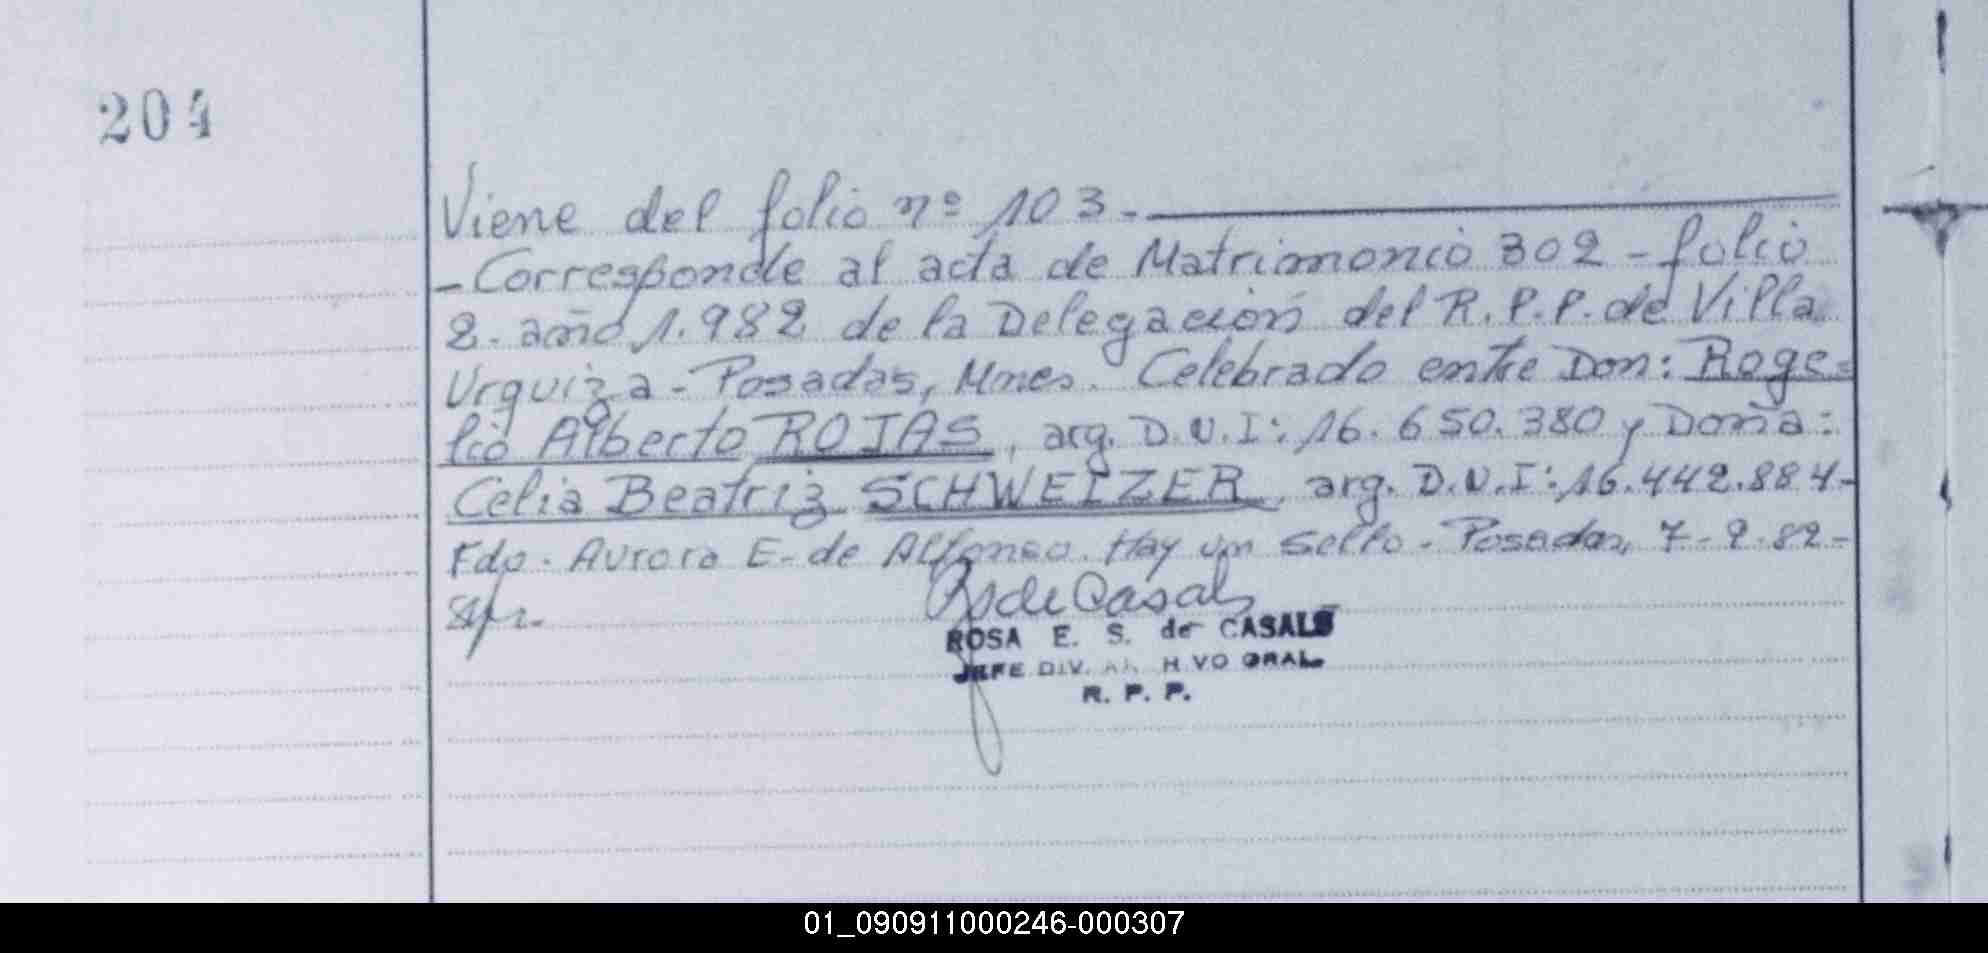 204
Viene del folio nº 103.-
- Corresponde al acta de Matrimonio 302 - folio
2. año 1.982 de la Delegación del R.P.P. de Villa
Urquiza - Posadas, Mnes. Celebrado entre Don: Roge=
lio Alberto ROJAS, arg. D.N.I: 16.650.380 y Doña:
Celia Beatriz SCHWEIZER, arg. D.N.I: 16.442.884-
Fdo. Aurora E. de Alfonso. Hay un sello. Posadas, 7-2-82-
RsdeCasals
ROSA E. S. de CASALS
JEFE DIV. ARCHIVO GRAL.
R. P. P.
01_090911000246-000307